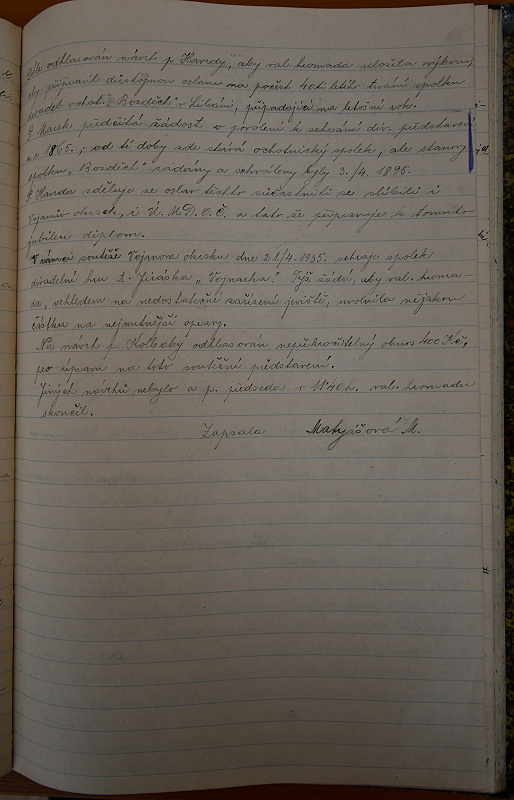 Dále odhlasován návrh p. Havrdy, aby val. hromada uložila výboru,
aby připravil důstojnou oslavu na počest 40ti letého trvání spolku
divadel. ochot. "Bozděch" v Libáni, připadající na letošní rok.
P. Marek předčítá žádost o povolení k sehrání div. představení
z r. 1865.; od té doby zde stává ochotnický spolek, ale stanovy
spolku "Bozděch" zadány a schváleny byly 3./4. 1895.
P. Havrda sděluje že oslav těchto súčastniti se slíbili i
Vojanův okrsek, i Ú. M. D. O. Č. a tato že připravuje k tomuto
jubileu diplom.
V rámci soutěže Vojanova okrsku dne 21/4. 1935. sehraje spolek
divadelní hru A. Jiráska "Vojnarka". Týž žádá, aby val. hroma-
da, vzhledem na nedostatečné zařízení jeviště, uvolnila nějakou
částku na nejnutnější opravy.
Na návrh p. Kolbaby odhlasován nepřekročitelný obnos 400 Kč,
pro úpravu na toto soutěžní představení.
Jiných návrhů nebylo a p. předseda v 11'40 h. val. hromadu
skončil.
Zapsala Matyášová M.